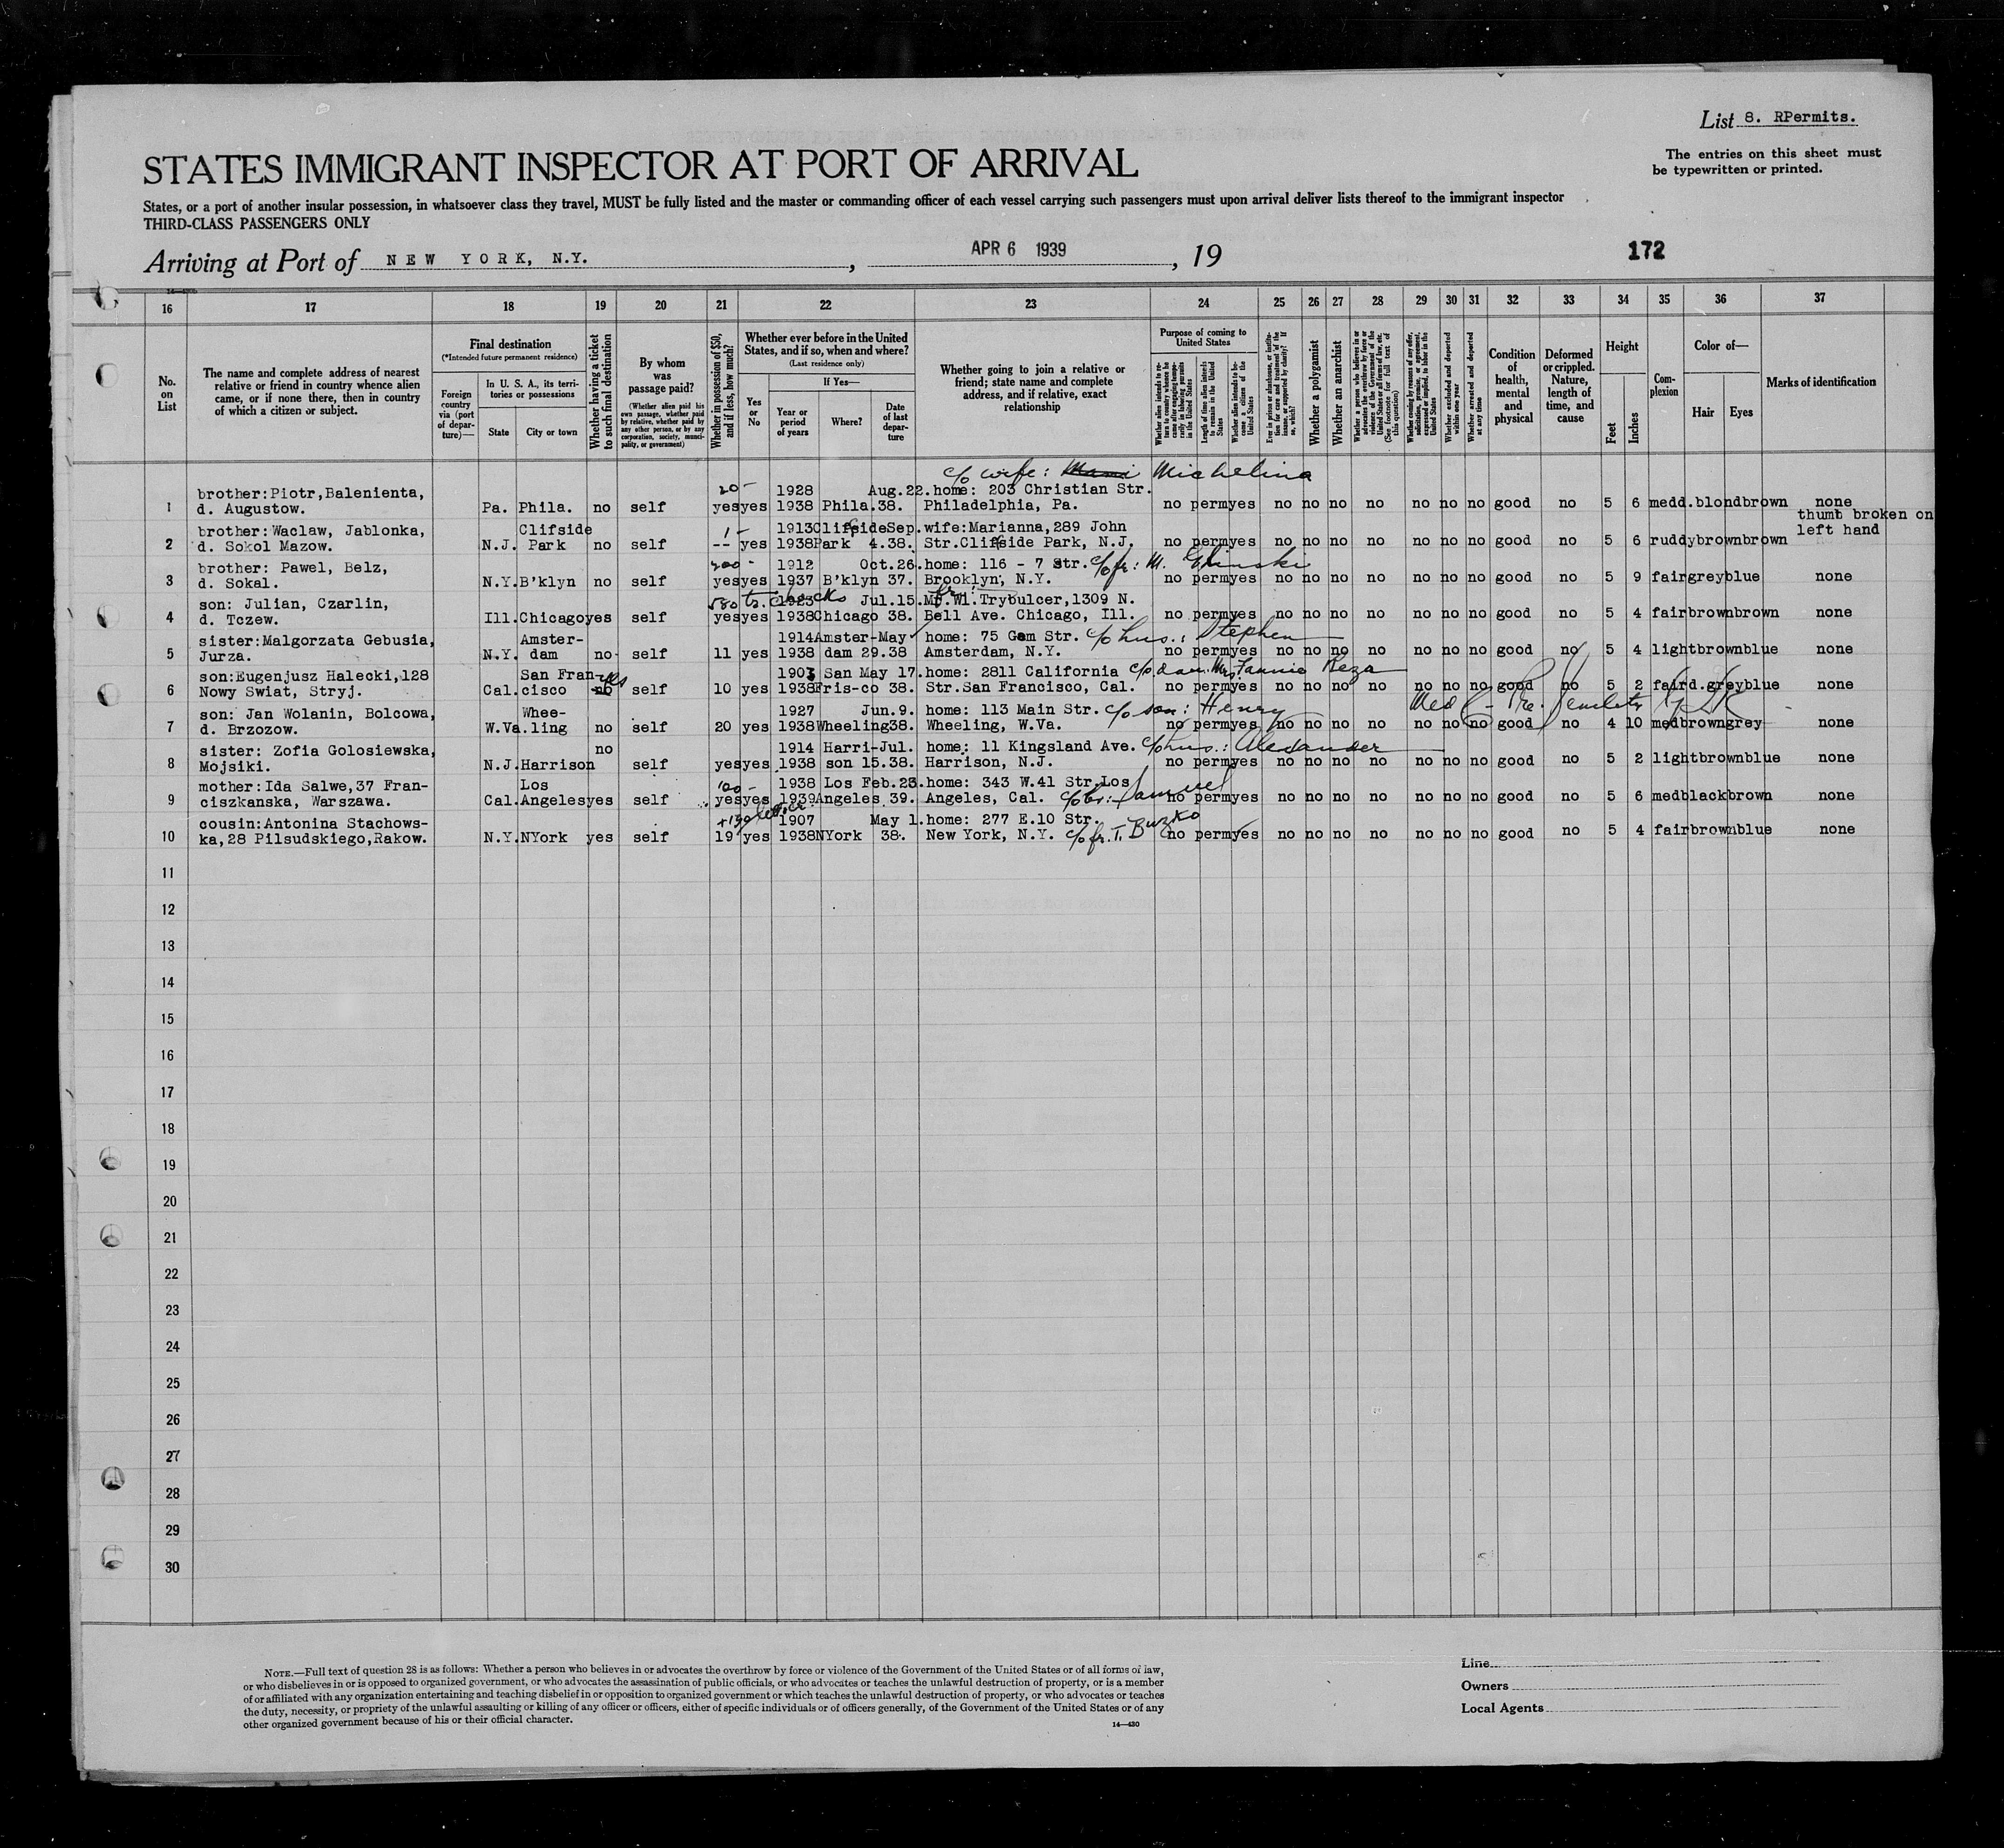 List 8. RPermits.
STATES IMMIGRANT INSPECTOR AT PORT OF ARRIVAL
The entries on this sheet must
be typewritten or printed.
States, or a port of another insular possession, in whatsoever class they travel, MUST be fully listed and the master or commanding officer of each vessel carrying such passengers must upon arrival deliver lists thereof to the immigrant inspector
THIRD-CLASS PASSENGERS ONLY
Arriving at Port of NEW YORK, N.Y. , APR 6 1939 , 19
172
16 17 18 19 20 21 22 23 24 25 26 27 28 29 30 31 32 33 34 35 36 37
No. on List
The name and complete address of nearest relative or friend in country whence alien came, or if none there, then in country of which a citizen or subject.
Final destination
(*Intended future permanent residence)
Foreign country via (port of departure)—
In U. S. A., its territories or possessions
State
City or town
Whether having a ticket to such final destination
By whom was passage paid?
(Whether alien paid his own passage, whether paid by relative, whether paid by any other person, or by any corporation, society, municipality, or government)
Whether in possession of $50, and if less, how much?
Whether ever before in the United States, and if so, when and where?
(Last residence only)
Yes or No
If Yes—
Year or period of years
Where?
Date of last departure
Whether going to join a relative or friend; state name and complete address, and if relative, exact relationship
Purpose of coming to United States
Whether a polygamist
Whether an anarchist
Condition of health, mental and physical
Deformed or crippled. Nature, length of time, and cause
Height
Feet
Inches
Complexion
Color of—
Hair
Eyes
Marks of identification
c/o wife: Michelina
20-
brother:Piotr,Balenienta, 1928 Aug.22.home: 203 Christian Str.
1 d. Augustow. Pa. Phila. no self yes yes 1938 Phila.38. Philadelphia, Pa. no perm yes no no no no no no no good no 5 6 medd.blond brown none
brother: Waclaw, Jablonka, Clifside 1- 1913 Clifside Sep.wife:Marianna,289 John thumb broken on
2 d. Sokol Mazow. N.J. Park no self -- yes 1938 Park 4.38. Str.Clifside Park, N.J. no perm yes no no no no no no no good no 5 6 ruddy brown brown left hand
brother: Pawel, Belz, 200- 1912 Oct.26.home: 116 - 7 Str. c/o fr: M.
3 d. Sokal. N.Y. B'klyn no self yes yes 1937 B'klyn 37. Brooklyn, N.Y. no perm yes no no no no no no no good no 5 9 fair grey blue none
son: Julian, Czarlin, 1923 Jul.15. Wl.Trybulcer,1309 N.
4 d. Tczew. Ill. Chicago yes self yes yes 1938 Chicago 38. Bell Ave. Chicago, Ill. no perm yes no no no no no no no good no 5 4 fair brown brown none
sister:Malgorzata Gebusia, Amster- 1914 Amster-May home: 75 Gem Str. c/o hus.: Stephen
5 Jurza. N.Y. dam no self 11 yes 1938 dam 29.38 Amsterdam, N.Y. no perm yes no no no no no no no good no 5 4 light brown blue none
son:Eugenjusz Halecki,128 San Fran- yes 1903 San May 17.home: 2811 California c/o dau. Mrs. Fannie Reza
6 Nowy Swiat, Stryj. Cal. cisco no self 10 yes 1938 Fris-co 38. Str.San Francisco, Cal. no perm yes no no no no no no no good no 5 2 fair d.grey blue none
son: Jan Wolanin, Bolcowa, Whee- 1927 Jun.9. home: 113 Main Str. c/o son: Henry
7 d. Brzozow. W.Va. ling no self 20 yes 1938 Wheeling 38. Wheeling, W.Va. no perm yes no no no no no no no good no 4 10 med brown grey none
sister: Zofia Golosiewska, no 1914 Harri-Jul. home: 11 Kingsland Ave. c/o hus.: Alexander
8 Mojsiki. N.J. Harrison self yes yes 1938 son 15.38. Harrison, N.J. no perm yes no no no no no no no good no 5 2 light brown blue none
mother:Ida Salwe,37 Fran- Los 100- 1938 Los Feb.23.home: 343 W.41 Str.Los
9 ciszkanska, Warszawa. Cal. Angeles yes self yes yes 1939 Angeles 39. Angeles, Cal. c/o br: Samuel no perm yes no no no no no no no good no 5 6 med black brown none
cousin:Antonina Stachows- 1907 May 1.home: 277 E.10 Str.
10 ka,28 Pilsudskiego,Rakow. N.Y. NYork yes self 19 yes 1938 NYork 38. New York, N.Y. c/o fr. T. Buzko no perm yes no no no no no no no good no 5 4 fair brown blue none
11
12
13
14
15
16
17
18
19
20
21
22
23
24
25
26
27
28
29
30
NOTE.—Full text of question 28 is as follows: Whether a person who believes in or advocates the overthrow by force or violence of the Government of the United States or of all forms of law,
or who disbelieves in or is opposed to organized government, or who advocates the assassination of public officials, or who advocates or teaches the unlawful destruction of property, or is a member
of or affiliated with any organization entertaining and teaching disbelief in or opposition to organized government or which teaches the unlawful destruction of property, or who advocates or teaches
the duty, necessity, or propriety of the unlawful assaulting or killing of any officer or officers, either of specific individuals or of officers generally, of the Government of the United States or of any
other organized government because of his or their official character.
14—430
Line
Owners
Local Agents